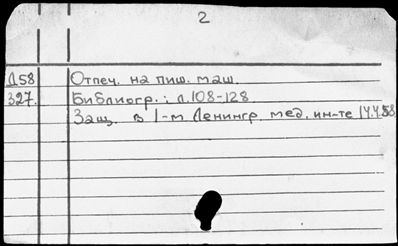 2
Д58 Отпеч. на пиш. маш.
327. Библиогр.: л.108-128.
Защ. в 1-м Ленингр. мед. ин-те 14.4.58.